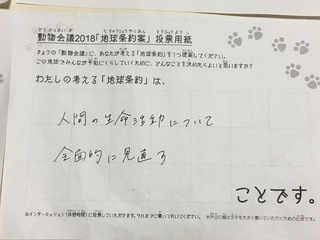 動物会議2018「地球条約案」投票用紙
きょうの「動物会議」に、あなたが考える「地球条約」を1つ提案してください。
この地球でみんなが平和にくらしていくために、どんなことを決めたらよいと思いますか?
わたしの考える「地球条約」は、
人間の生命活動について
全面的に見直す
ことです。